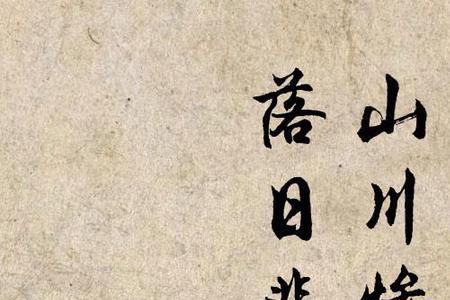 山川
落日